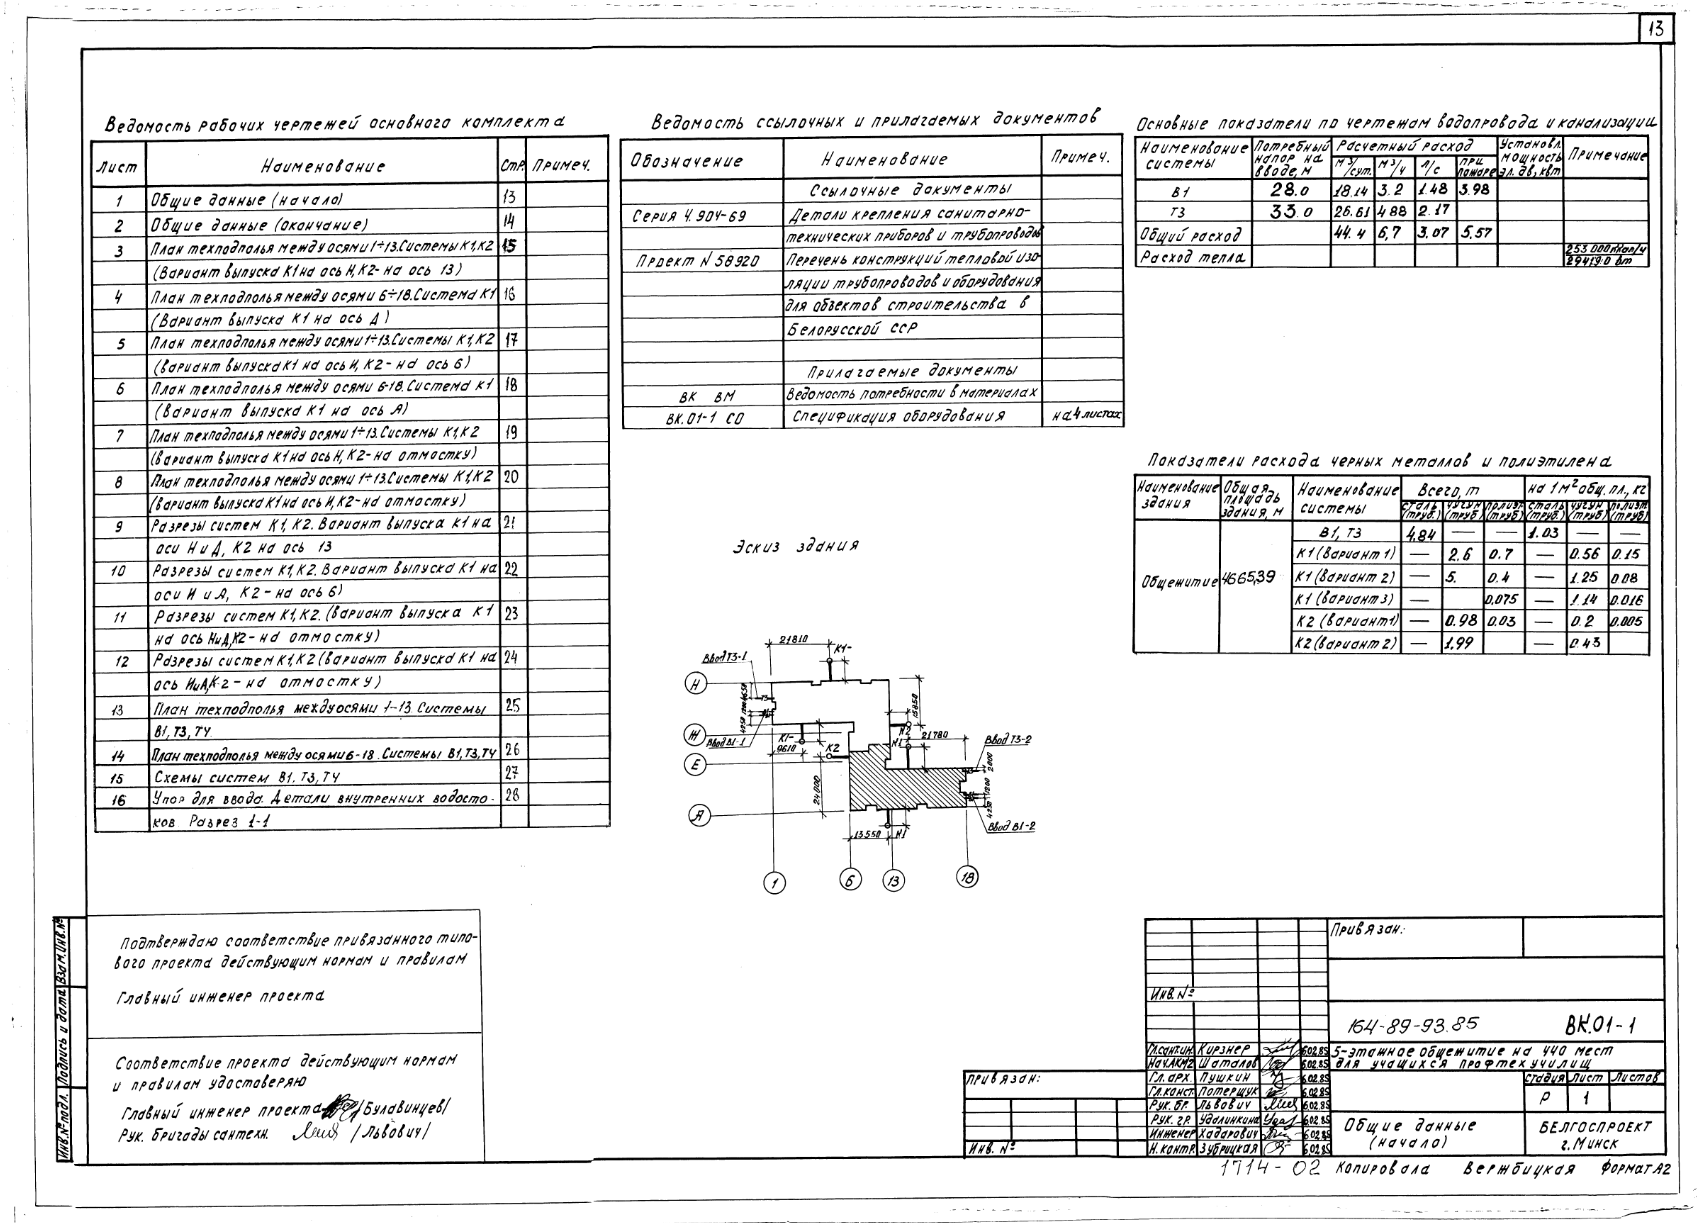 13
Ведомость рабочих чертежей основного комплекта
Лист Наименование Стр. Примеч.
1 Общие данные (начало) 13
2 Общие данные (окончание) 14
3 План техподполья между осями 1÷13. Системы К1, К2 15
(Вариант выпуска К1 на ось Н, К2- на ось 13)
4 План техподполья между осями 6÷18. Система К1 16
(Вариант выпуска К1 на ось Д)
5 План техподполья между осями 1÷13. Системы К1, К2 17
(вариант выпуска К1 на ось И, К2- на ось 6)
6 План техподполья между осями 6-18. Система К1 18
(вариант выпуска К1 на ось А)
7 План техподполья между осями 1÷13. Системы К1, К2 19
(вариант выпуска К1 на ось Н, К2- на отмостку)
8 План техподполья между осями 1÷13. Системы К1, К2 20
(вариант выпуска К1 на ось И, К2-на отмостку)
9 Разрезы систем К1, К2. Вариант выпуска К1 на 21
оси Н и Д, К2 на ось 13
10 Разрезы систем К1, К2. Вариант выпуска К1 на 22
оси И и А, К2- на ось 6)
11 Разрезы систем К1, К2. (вариант выпуска К1 23
на ось Н и Д, К2- на отмостку)
12 Разрезы систем К1, К2 (вариант выпуска К1 на 24
ось Н и А, К-2- на отмостку)
13 План техподполья между осями 1-13. Системы 25
В1, Т3, Т4.
14 План техподполья между осями 6-18. Системы В1, Т3, Т4 26
15 Схемы систем В1, Т3, Т4 27
16 Упор для ввода. Детали внутренних водосто- 28
ков Разрез 1-1
Ведомость ссылочных и прилагаемых документов
Обозначение Наименование Примеч.
Ссылочные документы
Серия 4.904-69 Детали крепления санитарно-
технических приборов и трубопроводов
Проект N 58920 Перечень конструкций тепловой изо-
ляции трубопроводов и оборудования
для объектов строительства в
Белорусской ССР
Прилагаемые документы
ВК ВМ Ведомость потребности в материалах
ВК.01-1 СО Спецификация оборудования на 4 листах
Основные показатели по чертежам водопровода и канализации
Наименование системы Потребный напор на вводе, м Расчетный расход Установл. мощность эл. дв, квт Примечание
м³/сут. м³/ч л/с при пожаре
В1 28.0 18.14 3.2 1.48 3.98
Т3 33.0 26.61 4.88 2.17
Общий расход 44.4 6,7 3.07 5.57
Расход тепла 253 000 ккал/ч
294190 вт
Показатели расхода черных металлов и полиэтилена
Наименование здания Общая площадь здания, м Наименование системы Всего, т на 1 м² общ. пл., кг
сталь (труб.) чугун (труб) полиэт (труб) сталь (труб.) чугун (труб.) полиэт (труб)
Общежитие 4665,39
В1, Т3 4,84 — — 1.03 — —
К1 (вариант 1) — 2.6 0.7 — 0.56 0.15
К1 (вариант 2) — 5. 0.4 — 1.25 0.08
К1 (вариант 3) — 0,075 — 1.14 0.016
К2 (вариант 1) — 0.98 0.03 — 0.2 0.005
К2 (вариант 2) — 1.99 — 0.43
Эскиз здания
21810
К1-
Ввод Т3-1
Н
15850
Ж
Ввод В1-1
К1-
9610
К2
К1
К2
21780
Ввод Т3-2
Е
24000
А
13550
К1
Ввод В1-2
1 6 13 18
Подтверждаю соответствие привязанного типо-
вого проекта действующим нормам и правилам
Главный инженер проекта
Соответствие проекта действующим нормам
и правилам удостоверяю
Главный инженер проекта /Булавинцев/
Рук. бригады сантехн. /Львович/
Инв. № подл. Подпись и дата Взам. Инв. №
Привязан:
Инв. №
Привязан:
Инв. №
164-89-93.85 ВК.01-1
Гл. сантхн. Кирзнер 6.02.85
Нач. АКМ2 Шаталов 6.02.85
Гл. арх. Пушкин 6.02.85
Гл. конст. Потерщук 6.02.85
Рук. бр. Львович 6.02.85
Рук. гр. Удалинкина 6.02.85
Инженер Хадарович 6.02.85
Н. контр. Зубрицкая 6.02.85
5-этажное общежитие на 440 мест
для учащихся профтехучилищ
Стадия Лист Листов
Р 1
Общие данные
(начало)
БЕЛГОСПРОЕКТ
г. Минск
1714-02 Копировала Вержбицкая Формат А2